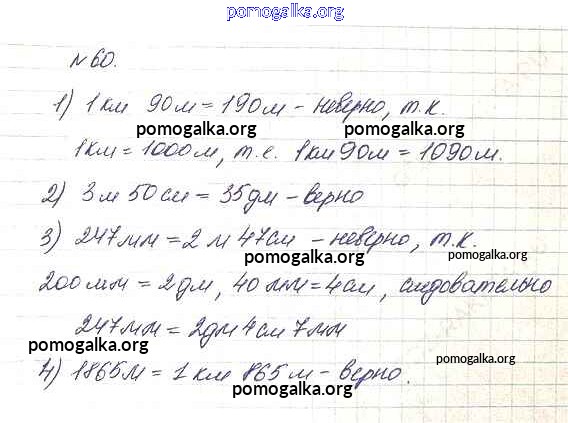 pomogalka.org
№60.
1) 1км 90м = 190м - неверно, т.к.
pomogalka.org pomogalka.org
1км = 1000м, т.е. 1км 90м = 1090м.
2) 3м 50см = 35дм - верно
3) 247мм = 2м 47см - неверно, т.к.
pomogalka.org pomogalka.org
200мм = 2дм, 40мм = 4см, следовательно
247мм = 2дм 4см 7мм
pomogalka.org pomogalka.org
4) 1865м = 1км 865м - верно.
pomogalka.org
pomogalka.org